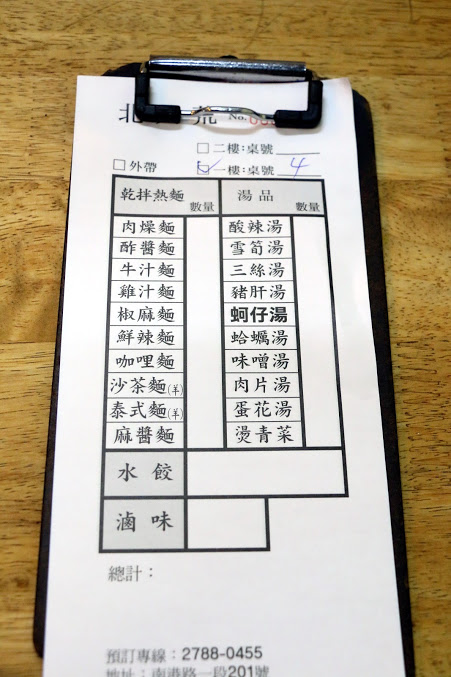 北 號 No.
□二樓:桌號
□外帶 ☑一樓:桌號 4
乾拌熱麵 數量 湯品 數量
肉燥麵 酸辣湯
酢醬麵 雪筍湯
牛汁麵 三絲湯
雞汁麵 豬肝湯
椒麻麵 蚵仔湯
鮮辣麵 蛤蠣湯
咖哩麵 味噌湯
沙茶麵(羊) 肉片湯
泰式麵(羊) 蛋花湯
麻醬麵 燙青菜
水餃
滷味
總計：
預訂專線：2788-0455
地址：南港路一段201號